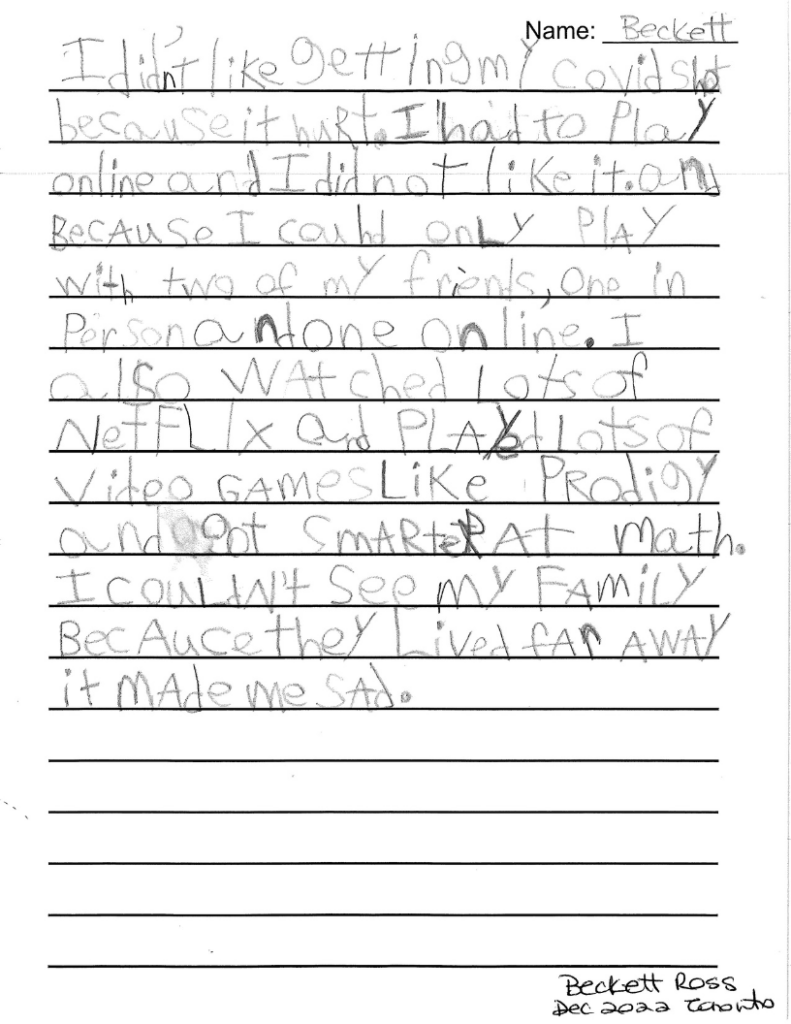 Name: Beckett
I didn't like getting my covid shot
because it hurt. I had to Play
online and I did not like it. and
BecAuse I could onLy PlAy
with two of my friends, one in
Person and one online. I
also WAtched Lots of
NetFLix and PLAyed Lots of
Video GAmes Like PRodigy
and got SmARteR At math.
I couLdN't See my FAmily
BecAuce they Lived fAr AWAY
it mAde me SAd.
Beckett Ross
Dec 2022 Toronto